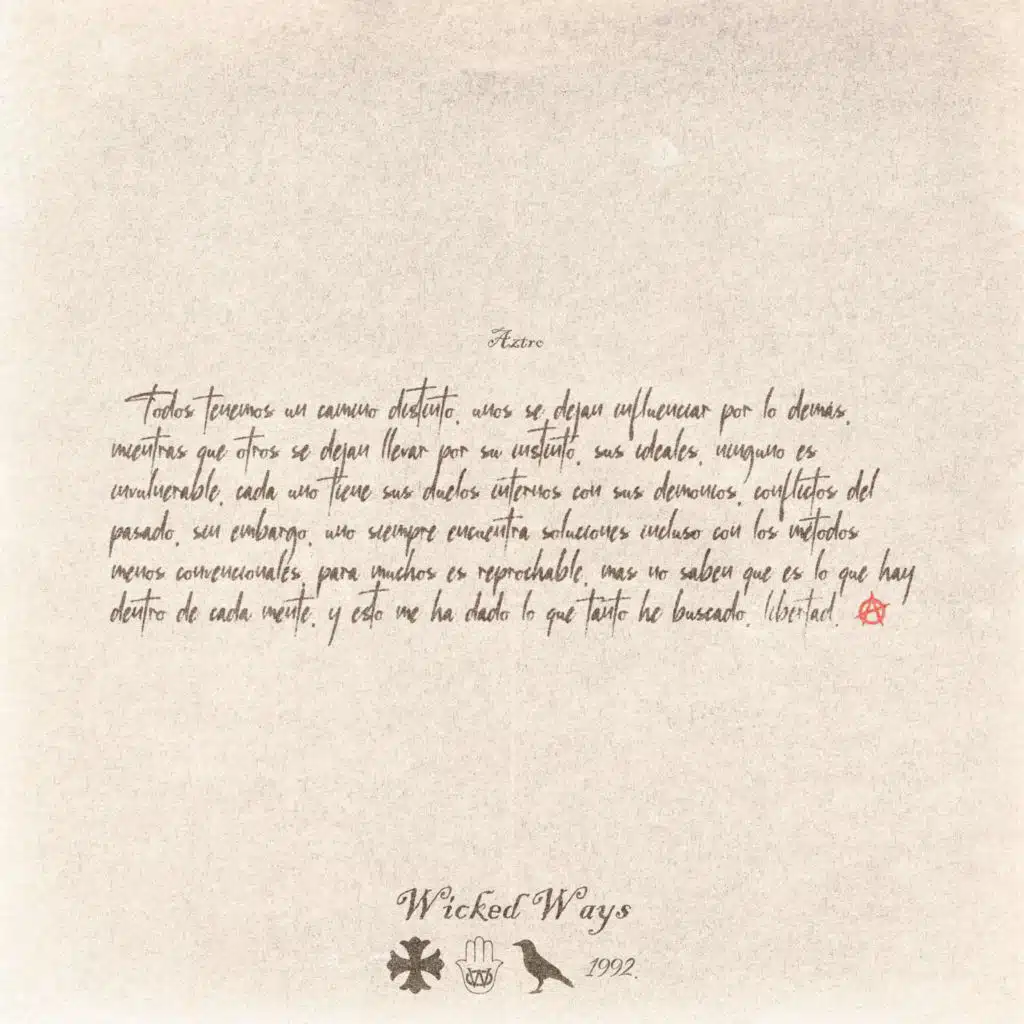 Aztro
Todos tenemos un camino distinto, unos se dejan influenciar por lo demás,
mientras que otros se dejan llevar por su instinto, sus ideales, ninguno es
invulnerable, cada uno tiene sus duelos internos con sus demonios, conflictos del
pasado, sin embargo, uno siempre encuentra soluciones incluso con los métodos
menos convencionales, para muchos es reprochable, mas no saben que es lo que hay
dentro de cada mente, y esto me ha dado lo que tanto he buscado, libertad.
Wicked Ways
1992.